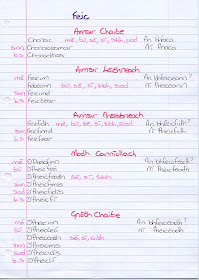 Feic
Aimsir Chaite
Chonaic mé, tú, sé, sí, sibh, siad An bhfaca
sinn Chonaiceamar Ní fhaca
b.s Chonacthas
Aimsir Láithreach
mé Feicim An bhfeiceann?
Feiceann tú, sé, sí, sibh, siad Ní fheiceann
sinn Feicimid
b.s Feictear
Aimsir Fháistineach
Feicfidh mé, tú, sé, sí, sibh, siad An bhfeicfidh?
sinn Feicfimid Ní fheicfidh
b.s Feicfear
Modh Coinníollach
mé D'fheicfinn An bhfeicfeadh?
tú D'fheicfeá Ní fheicfeadh
D'fheicfeadh sé, sí, sibh
sinn D'fheicfimis
siad D'fheicfidís
b.s D'fheicfí
Gnáth Chaite
mé D'fheicinn An bhfeiceadh?
tú D'fheicteá Ní fheiceadh
D'fheiceadh sé, sí, sibh
sinn D'fheicimis
siad D'fheicidís
b.s D'fheictí